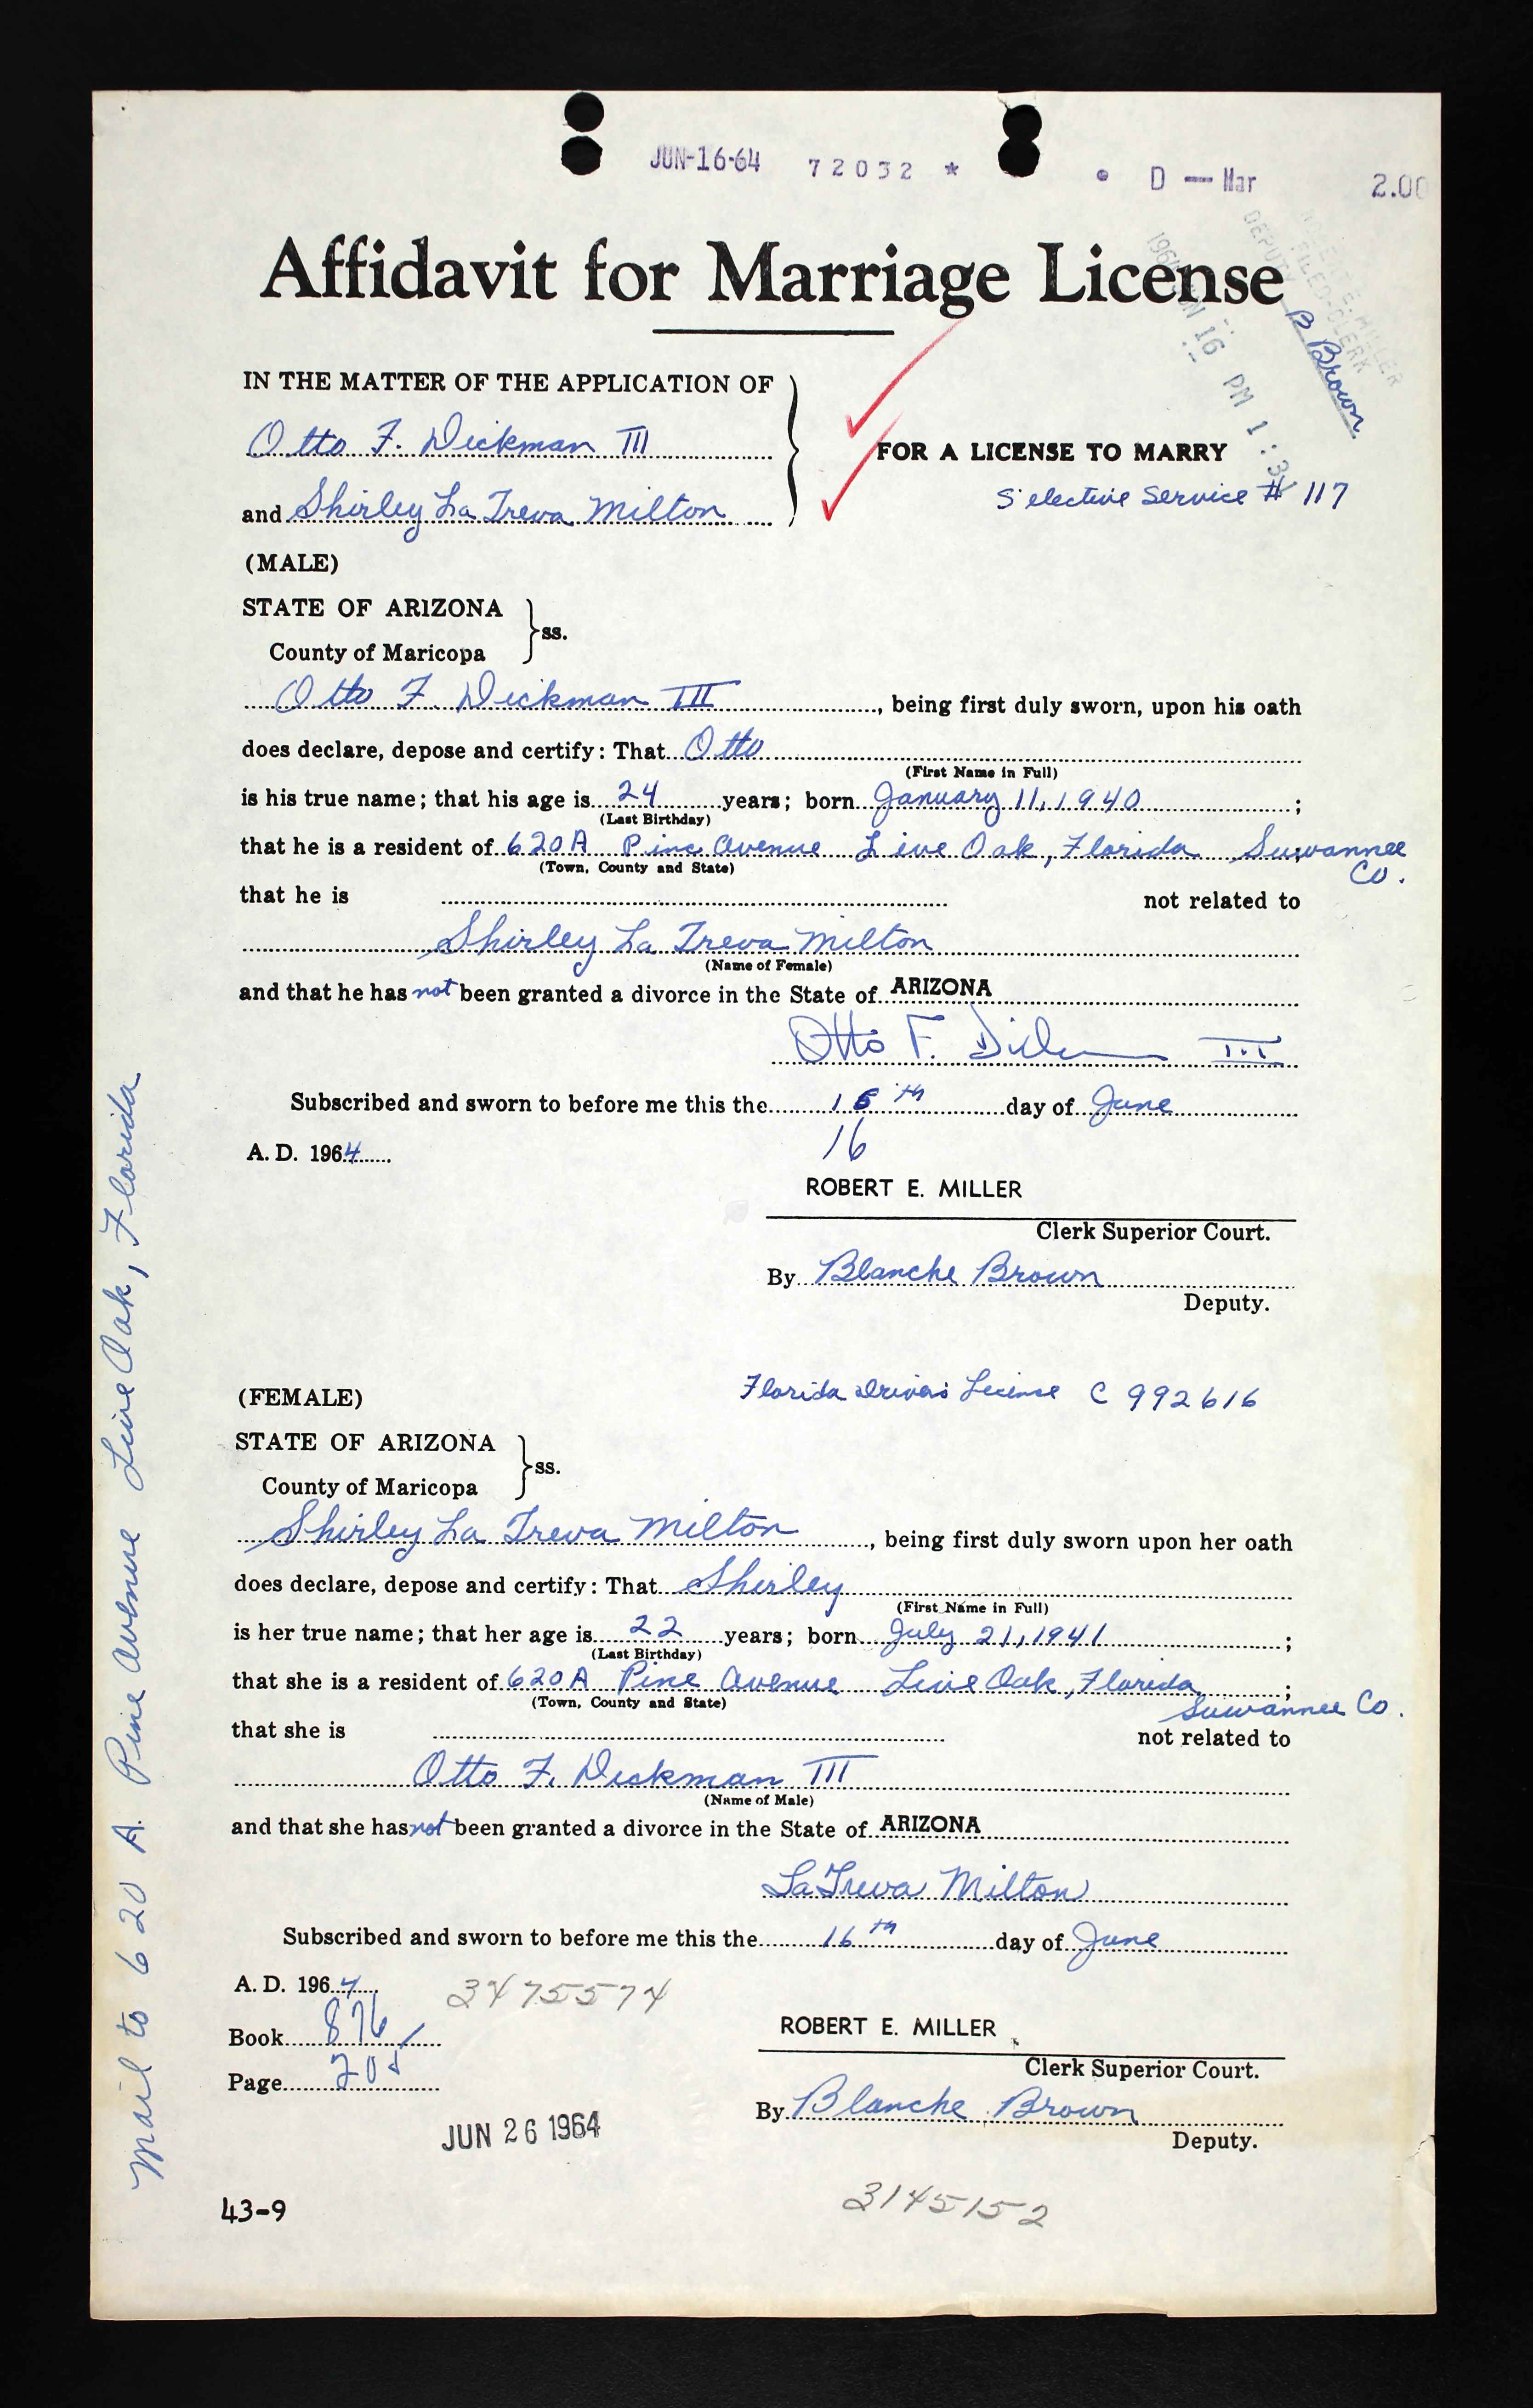 JUN-16-64 72032 * • D — Mar 2.00
Affidavit for Marriage License
FILED-CLERK
DEPUTY B Brown
JUN 16 PM 1:3
IN THE MATTER OF THE APPLICATION OF
Otto F. Dickman III
FOR A LICENSE TO MARRY
Selective Service # 117
and Shirley La Treva Milton
(MALE)
STATE OF ARIZONA
ss.
County of Maricopa
Otto F. Dickman III, being first duly sworn, upon his oath
does declare, depose and certify: That Otto
(First Name in Full)
is his true name; that his age is 24 years; born January 11, 1940;
(Last Birthday)
that he is a resident of 620A Pine Avenue Live Oak, Florida Suwannee
Co.
(Town, County and State)
that he is not related to
Shirley La Treva Milton
(Name of Female)
and that he has not been granted a divorce in the State of ARIZONA
Otto F. III
Subscribed and sworn to before me this the 15th day of June
16
A. D. 1964
ROBERT E. MILLER
Clerk Superior Court.
By Blanche Brown
Deputy.
(FEMALE)
Florida Drivers License C 992616
STATE OF ARIZONA
ss.
County of Maricopa
Shirley La Treva Milton, being first duly sworn upon her oath
does declare, depose and certify: That Shirley
(First Name in Full)
is her true name; that her age is 22 years; born July 21, 1941;
(Last Birthday)
that she is a resident of 620A Pine Avenue Live Oak, Florida;
Suwannee Co.
(Town, County and State)
that she is not related to
Otto F. Dickman III
(Name of Male)
and that she has not been granted a divorce in the State of ARIZONA
LaTreva Milton
Subscribed and sworn to before me this the 16th day of June
A. D. 1964
3475574
Book 876
Page 205
ROBERT E. MILLER
Clerk Superior Court.
By Blanche Brown
Deputy.
JUN 26 1964
43-9
3145152
Mail to 620 A. Pine Avenue Live Oak, Florida